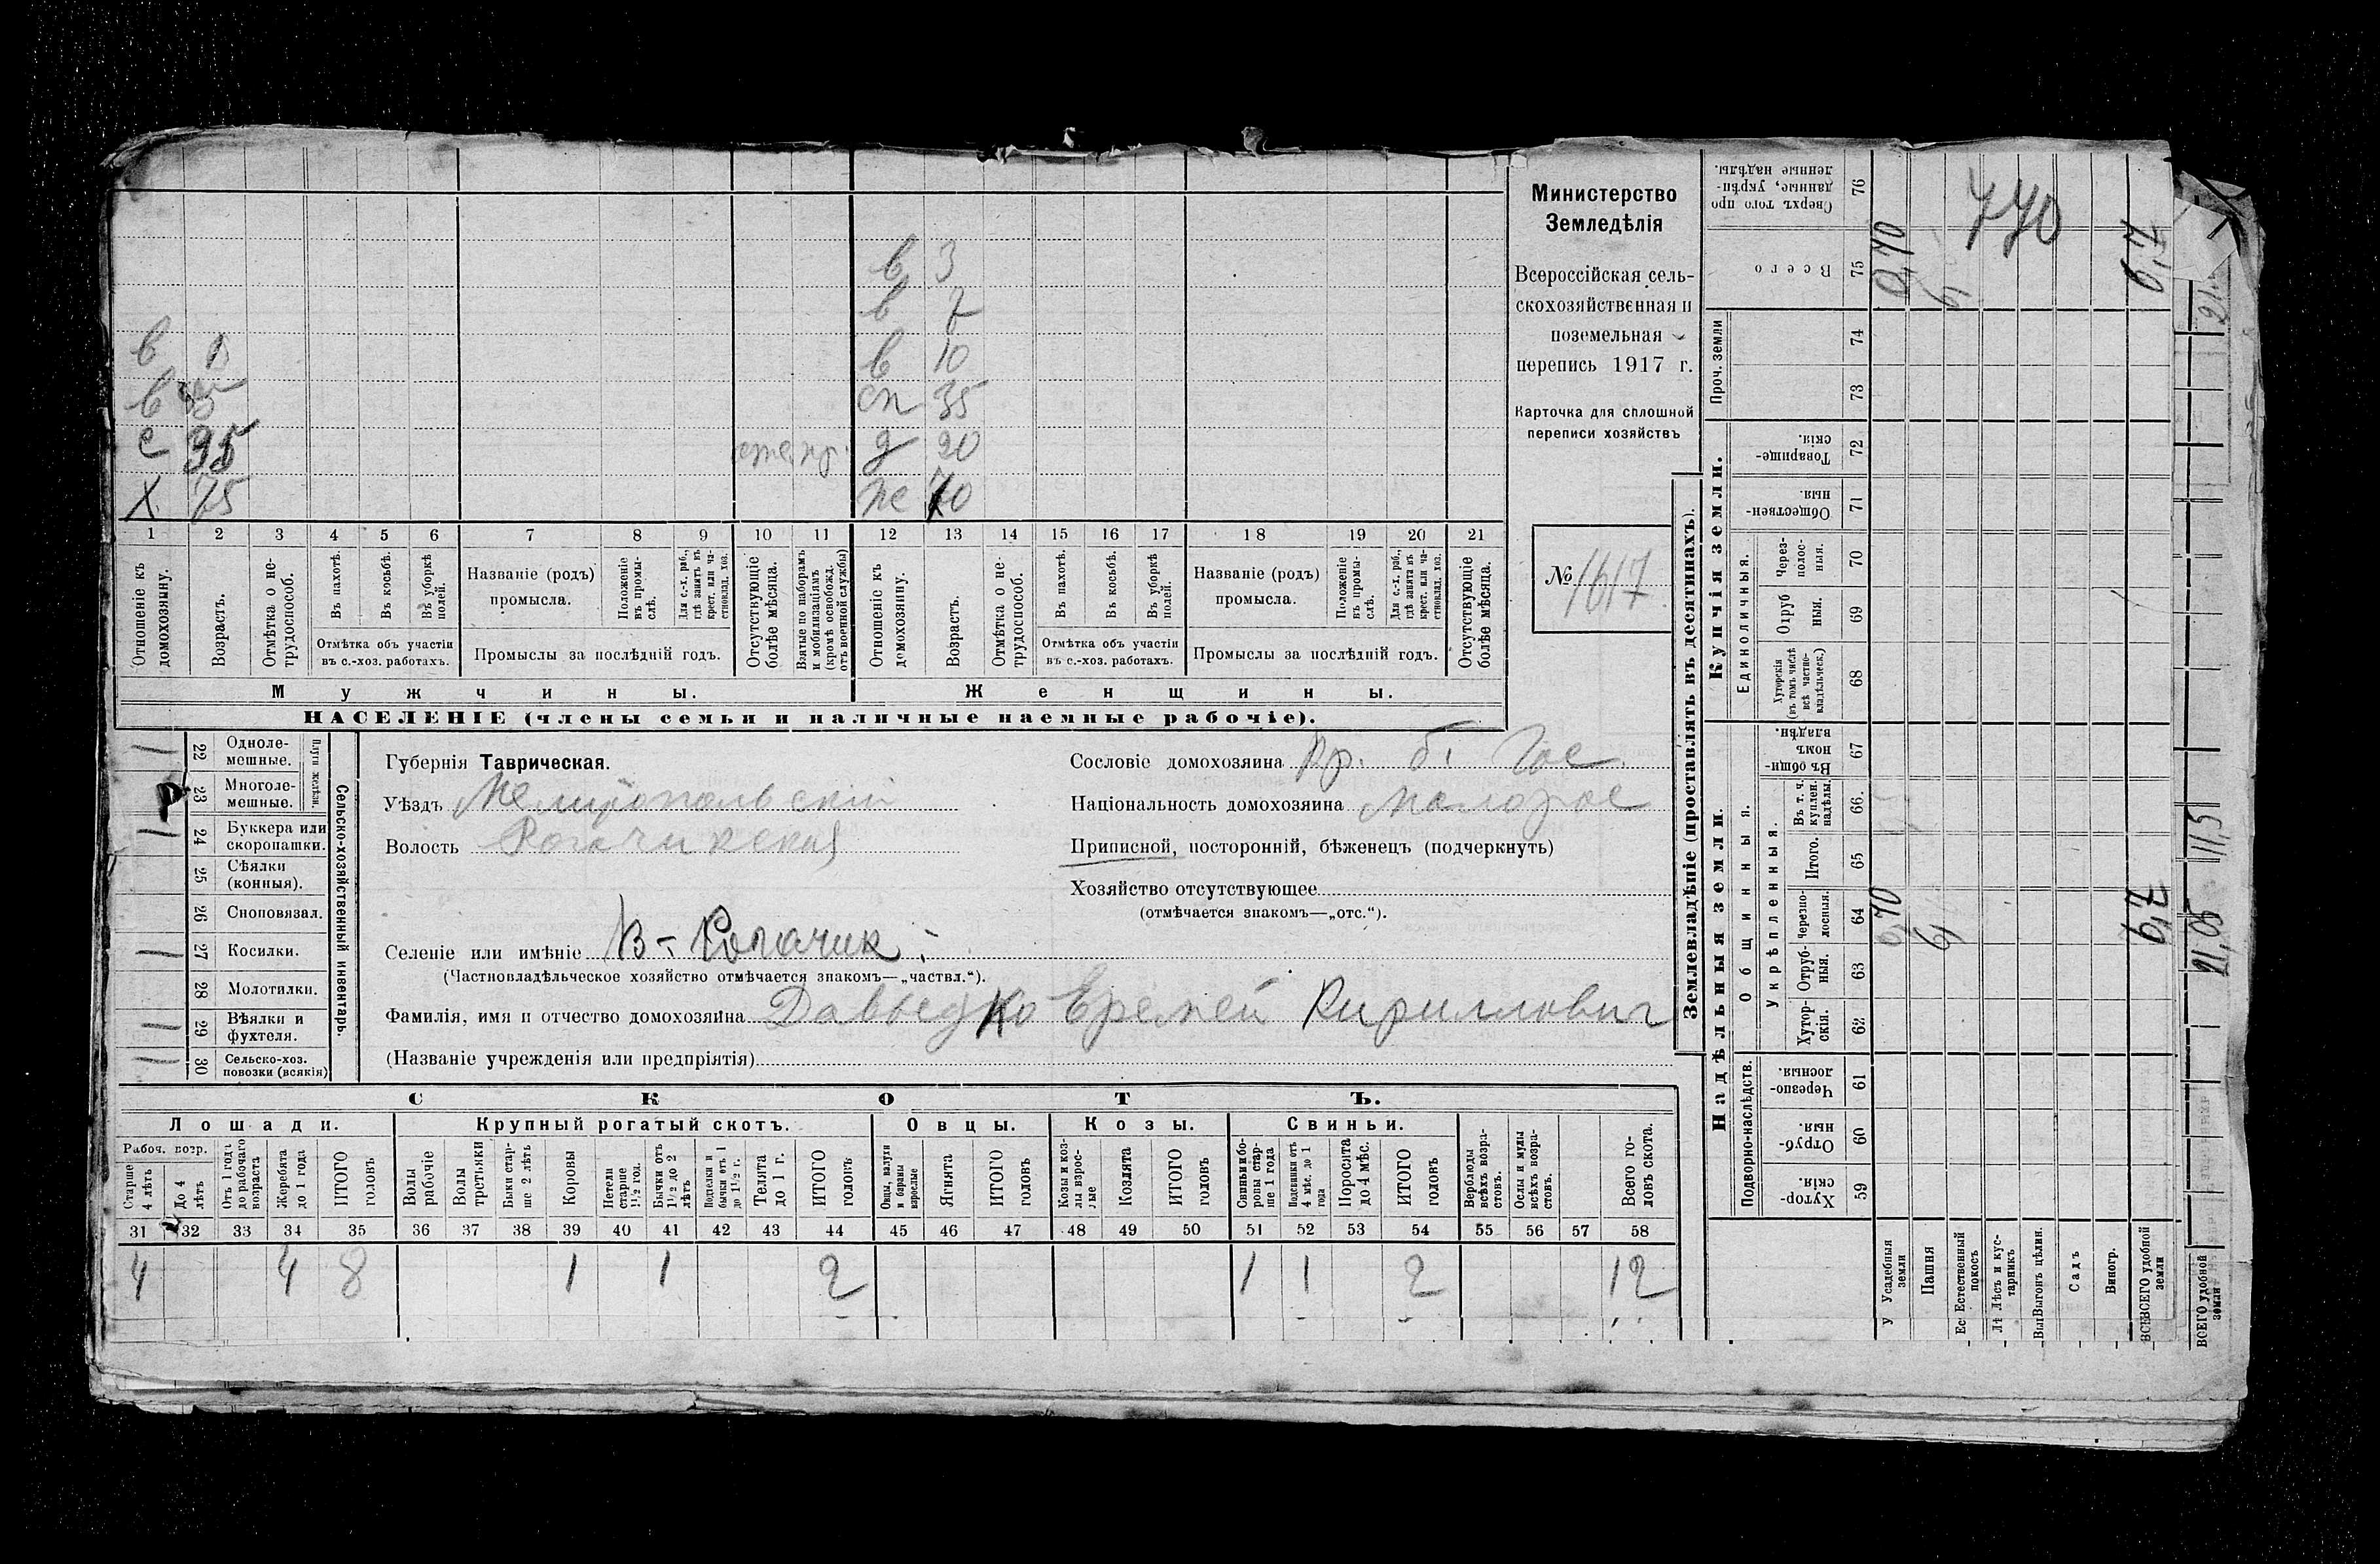 в 3
в 7
в 1 в 10
в сп 35
с 35 д 20
х 75 же 70
1 2 3 4 5 6 7 8 9 10 11 12 13 14 15 16 17 18 19 20 21
Отношеніе къ домохозяину.
Возрастъ.
Отмѣтка о нетрудоспособ.
Въ пахотѣ.
Въ косьбѣ.
Въ уборкѣ полей.
Отмѣтка объ участіи въ с.-хоз. работахъ.
Названіе (родъ) промысла.
Положеніе въ промыслѣ.
Для с.-х. раб., гдѣ занятъ въ крест. или частновлад. хоз.
Промыслы за послѣдній годъ.
Отсутствующіе болѣе мѣсяца.
Взятые по наборамъ и мобилизаціямъ (кромѣ освобожд. отъ военной службы)
Отношеніе къ домохозяину.
Возрастъ.
Отмѣтка о нетрудоспособ.
Въ пахотѣ.
Въ косьбѣ.
Въ уборкѣ полей.
Отмѣтка объ участіи въ с.-хоз. работахъ.
Названіе (родъ) промысла.
Положеніе въ промыслѣ.
Для с.-х. раб., гдѣ занята въ крест. или частновлад. хоз.
Промыслы за послѣдній годъ.
Отсутствующіе болѣе мѣсяца.
Мужчины.
Женщины.
НАСЕЛЕНІЕ (члены семьи и наличные наемные рабочіе).
Министерство
Земледѣлія
Всероссійская сель-
скохозяйственная и
поземельная
перепись 1917 г.
Карточка для сплошной
переписи хозяйствъ
№ 1617
Сельско-хозяйственный инвентарь.
Плуги желѣзн.
1 22 Однолемешные.
23 Многолемешные.
1 24 Буккера или скоропашки.
25 Сѣялки (конныя).
26 Сноповязал.
1 27 Косилки.
28 Молотилки.
1 29 Вѣялки и фухтеля.
30 Сельско-хоз. повозки (всякія)
Губернія Таврическая.
Уѣздъ Мелитопольскій
Волость Рогачикская
Селеніе или имѣніе В-Рогачик
(Частновладѣльческое хозяйство отмѣчается знакомъ—„частвл.“).
Фамилія, имя и отчество домохозяина Давыдко Еремей Кириллович
(Названіе учрежденія или предпріятія)
Сословіе домохозяина кр. б. гос.
Національность домохозяина малорос
Приписной, посторонній, бѣженецъ (подчеркнуть)
Хозяйство отсутствующее
(отмѣчается знакомъ—„отс.“).
СКОТЪ.
Лошади. Крупный рогатый скотъ. Овцы. Козы. Свиньи.
Рабоч. возр.
Старше 4 лѣтъ
До 4 лѣтъ
Отъ 1 года до рабочаго возраста
Жеребята до 1 года
ИТОГО головъ
Волы рабочіе
Волы третьяки
Быки старше 2 лѣтъ
Коровы
Нетели старше 1½ год.
Бычки отъ 1½ до 2 лѣтъ
Подтелки и бычки отъ 1 до 1½ г.
Телята до 1 г.
ИТОГО головъ
Овцы, валухи и бараны взрослые
Ягнята
ИТОГО головъ
Козы и козлы взрослые
Козлята
ИТОГО головъ
Свиньи и боровы старше 1 года
Подсвинки отъ 4 мѣс. до 1 года
Поросята до 4 мѣс.
ИТОГО головъ
Верблюды всѣхъ возрастовъ.
Ослы и мулы всѣхъ возрастовъ.
Всего головъ скота.
31 32 33 34 35 36 37 38 39 40 41 42 43 44 45 46 47 48 49 50 51 52 53 54 55 56 57 58
4 4 8 1 1 2 1 1 2 12
Землевладѣніе (проставлять въ десятинахъ).
Сверхъ того проданные, укрѣпленные надѣлы. 76
Всего 75
Проч. земли 74 73
Купчія земли.
Товарищескія. 72
Общественныя 71
Единоличныя.
Черезполосныя. 70
Отрубныя. 69
Хуторскія (въ томъ числѣ всѣ частновладѣльческ.) 68
Надѣльныя земли.
Общинныя.
Въ общинномъ владѣн. 67
Укрѣпленныя.
Въ т. ч. куплен. надѣлы. 66
Итого. 65
Черезполосныя. 64
Отрубныя. 63
Хуторскія. 62
Подворно-наслѣдств.
Черезполосныя 61
Отрубныя 60
Хуторскія. 59
Усадебныя земли 0,70 0,70
Пашня 6, 6,
Естественный покосъ
Лѣсъ и кустарникъ
Выгонъ цѣлин.
Садъ
Виногр.
ВСЕГО удобной земли 6,7 6,7
770
ВСЕГО удобной земли
21,05 11,5